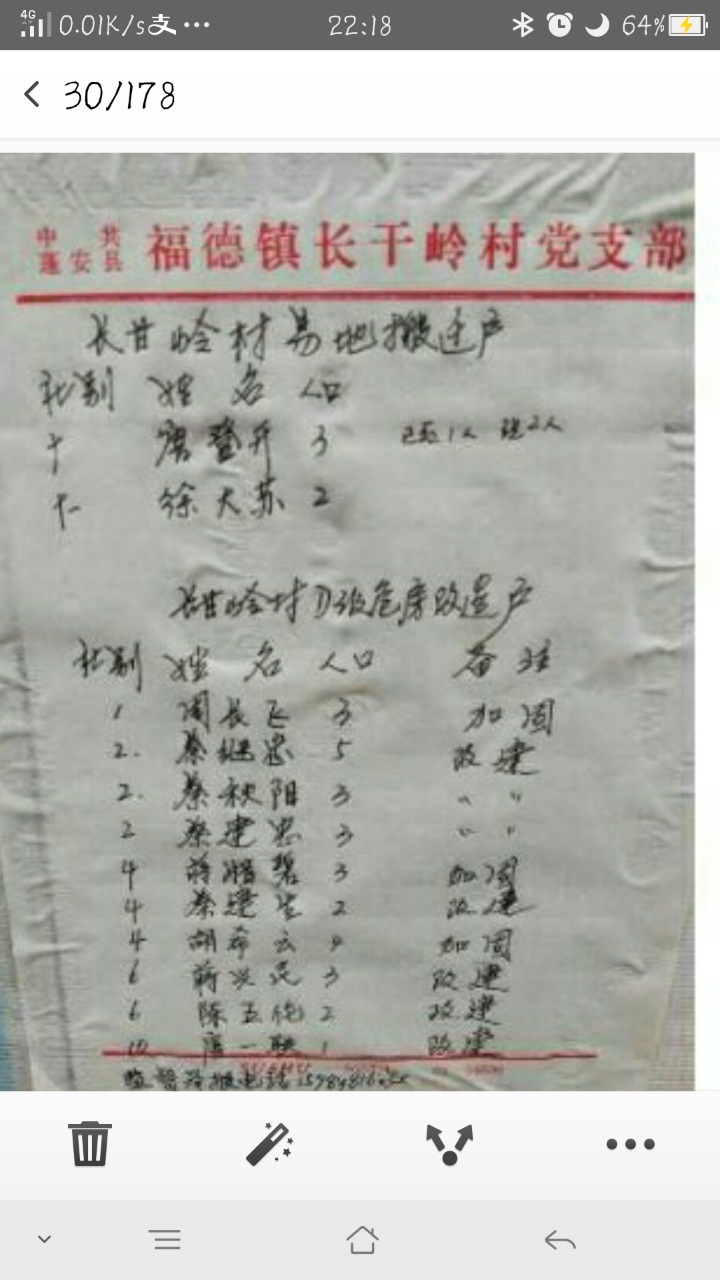 4G 0.01K/s 支 ... 22:18 64%
30/178
中共
蓬安县 福德镇长干岭村党支部
长甘岭村易地搬迁户
社别 姓名 人口
十 唐登开 3 1人 2人
十一 徐大苏 2
长甘岭村D级危房改造户
社别 姓名 人口 备注
1 周长飞 3 加固
2. 蔡继忠 5 改建
2. 蔡秋阳 3 " "
2 蔡建忠 3 " "
4 蒋 碧 3 加固
4 蔡建生 2 改建
4 胡希云 加固
6 蒋兴 3 改建
6 陈五 2 改建
10 唐一 1 改建
监督举报电话